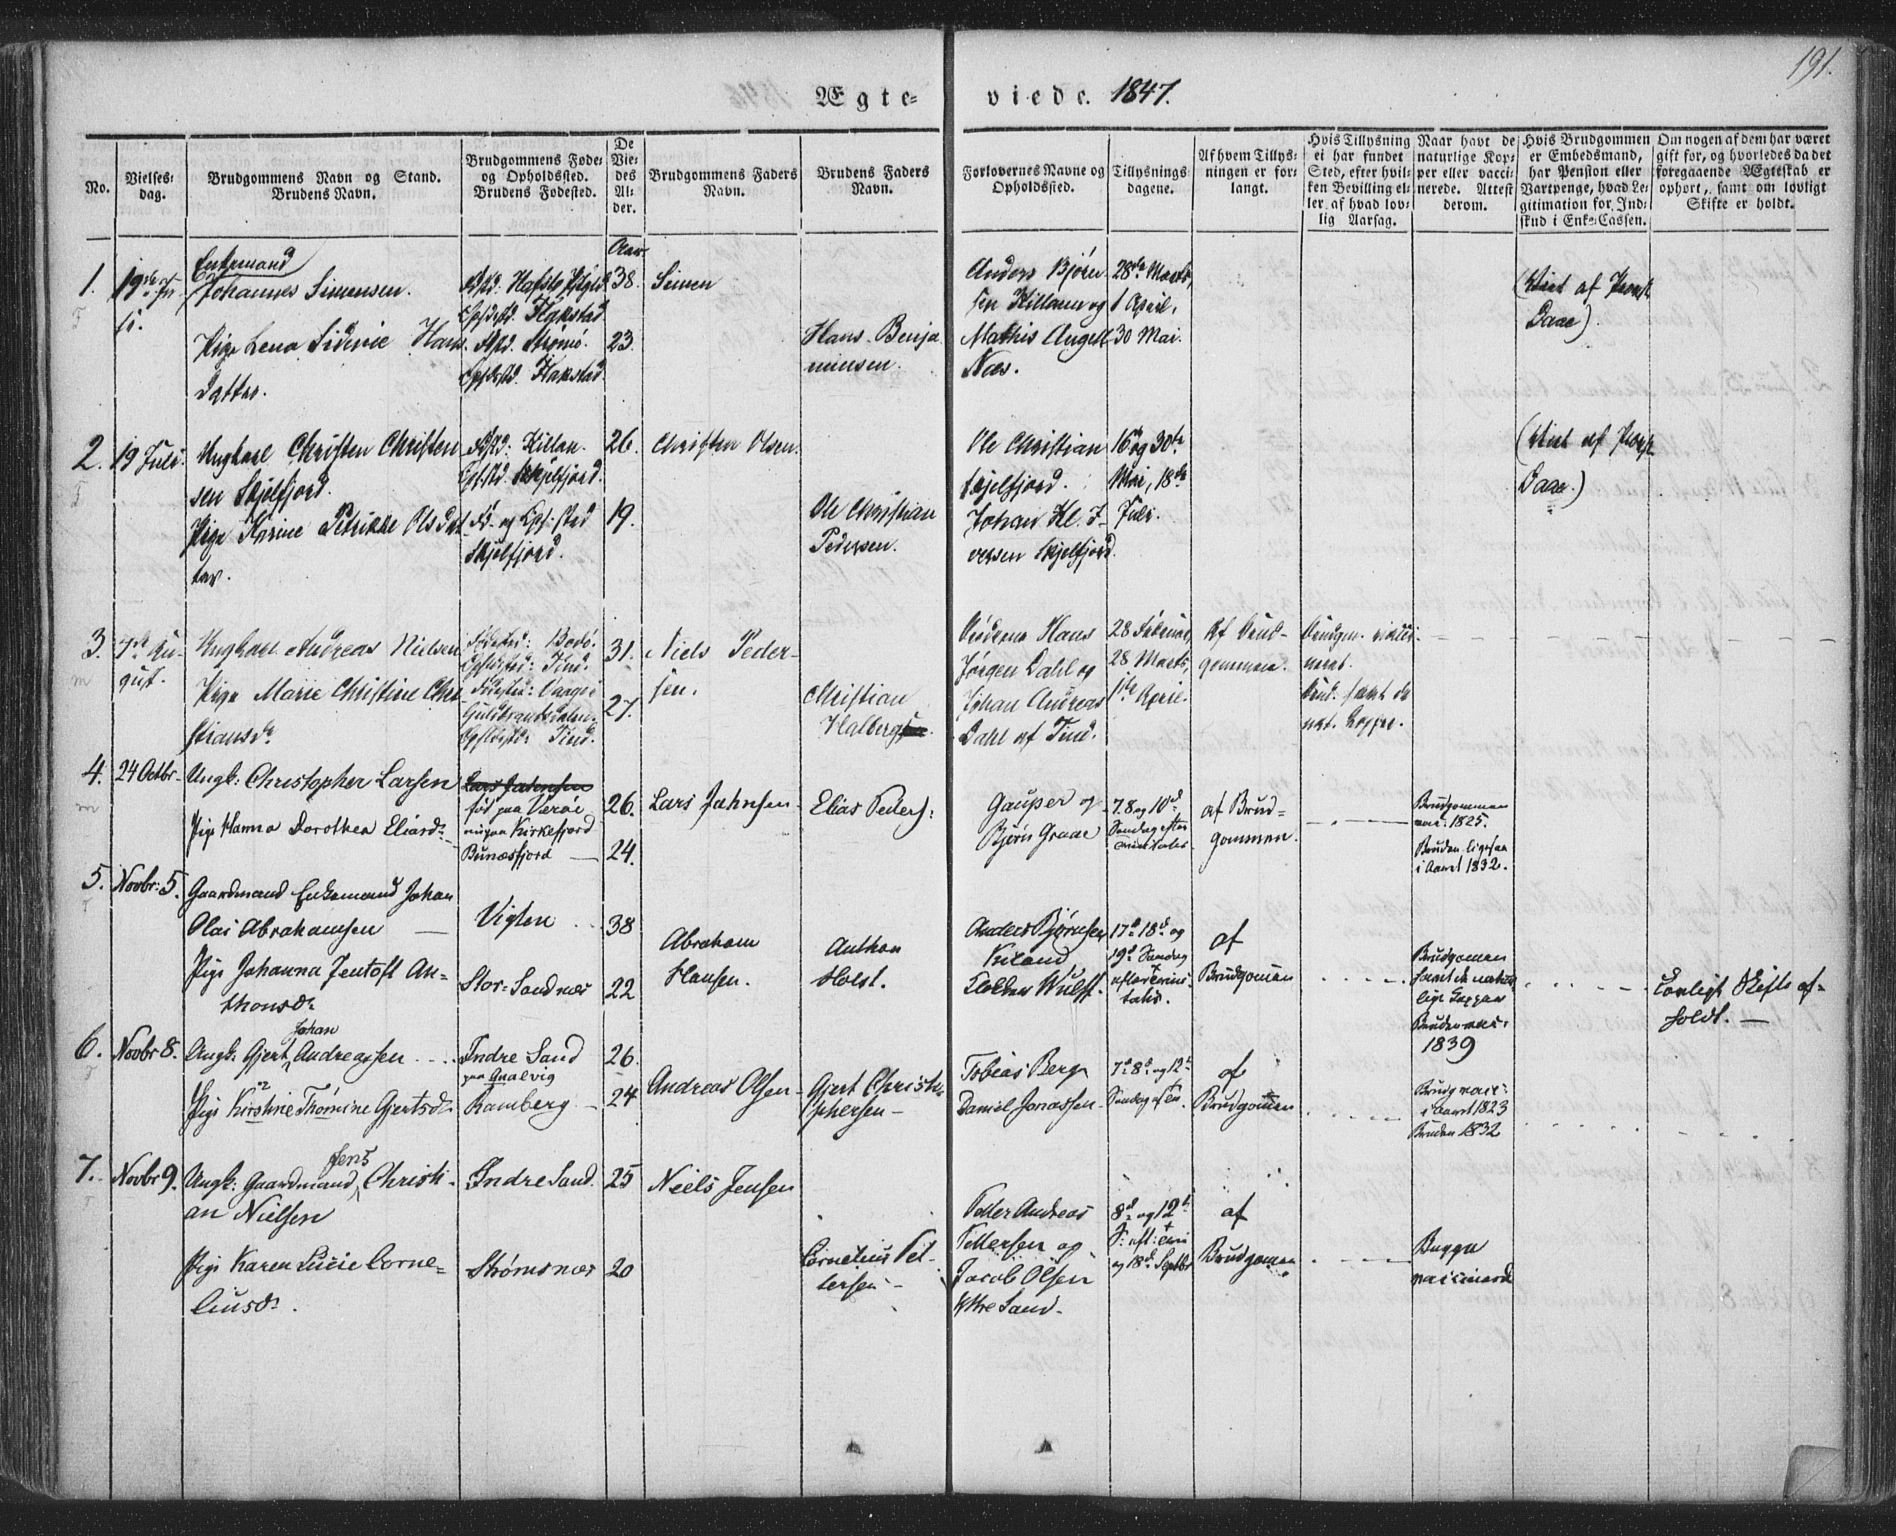 191.
Ægte-
viede. 1847.
No.
Vielses-
dag.
Brudgommens Navn og Stand.
Brudens Navn.
Brudgommens Føde-
og Opholdssted.
Brudens Fødested.
De
Vie-
des
Al-
der.
Brudgommens Faders
Navn.
Brudens Faders
Navn.
Forlovernes Navne og
Opholdssted.
Tillysnings-
dagene.
Af hvem Tillys-
ningen er for-
langt.
Hvis Tillysning
ei har fundet
Sted, efter hvil-
ken Bevilling el-
ler af hvad lov-
lig Aarsag.
Naar havt de
naturlige Kop-
per eller vacci-
nerede. Attest
derom.
Hvis Brudgommen
er Embedsmand,
har Pension eller
Vartpenge, hvad Le-
gitimation for Ind-
skud i Enke-Cassen.
Om nogen af dem har været
gift før, og hvorledes da det
foregaaende Ægteskab er
ophørt, samt om lovligt
Skifte er holdt.
Aar
1.
Enkemand
Johannes Simensen.
Pige Lena Hans
datter.
38.
23.
Simen
Hans Benja
minsen.
Anders Bjørn
sen Killan og
Mathis Angell
Næs.
28de Marts,
1 April,
30 Mai.
(Viet af Provst
Daae).
2.
19 Juli.
Ungkarl Christen Christen
sen Skjelfjord.
Pige Karine Petrikke Olsdat
ter.
Fsted: Killan.
Skjelfjord.
Skjelfjord.
26.
19.
Christen Olsen.
Ole Christian
Pedersen.
Ole Christian
Skjelfjord.
Johan Kl. I-
versen Skjelfjord.
16de og 30te
Mai, 18de
Juli.
(Viet af Provst
Daae.)
3.
7de Au-
gust.
Ungkarl Andreas Nielsen
Pige Marie Christine Chri
stiansdr
Fødested: Bodø.
Opholdsted: Tind.
Fødested: Vaage i
Guldbrandsdalen.
Opholdsted: Tind.
31.
27.
Niels Peder-
sen.
Christian
Halberg
Hans
Jørgen Dahl og
Johan Andreas
Dahl af Tind.
28 Februar,
28 Marts,
1ste April.
Af Brud-
gommen.
Brudgm. vacci-
neret.
Brud. havt de
nat. Kopper.
4.
24 Octbr
Ungk: Christopher Larsen
Pige Hanna Dorothea Eliasdr
født paa Værøe
nu paa Kirkefjord
Bunæsfjord
26.
24.
Lars Jahnsen
Elias Peders:
Gauper og
Bjørn Graae
7. 8 og 10d
Søndag efter
Trinitatis
af Brud-
gommen.
Brudgommen
vac: 1825.
Bruden ligesaa
i Aaret 1832.
5.
Novbr: 5.
Gaardmand Enkemand Johan
Olai Abrahamsen
Pige Johanna Jentoft An-
thonsdr
Vigten
Stor-Sandnæs
38
22
Abraham
Hansen.
Anthon
Holst.
Anders Bjørnsen
Kiland
Wulff.
17d 18d og
19d Søndag
efter Trini
tatis.
af
Brudgomen
Brudgomen
havt de natur
lige Kopper
Bruden vac:
1839
Lovligt Skifte af-
holdt.
6.
Novbr 8.
Johan
Ungk: Gjert Andreassen
Pige Kirstine Thomine Gjertsdr
Indre Sand
paa Qualvig
Ramberg
26.
24
Andreas Olsen
Gjert Christo-
phersen
Tobias Berg
Daniel Jonassen
7d 8d og 12t
Søndag
af
Brudgomen
Brudg vac:
i Aaret 1823
Bruden 1832
7.
Novbr 9.
Jens
Ungk: Gaardmand Christi-
an Nielsen
Pige Karen Lucie Corne-
liusdr.
Indre Sand.
Strømsnæs
25
20
Niels Jensen
Cornelius Pet-
tersen
Peder Andreas
Pettersen og
Jacob Olsen
Yttre Sand
8d og 12t
S: eft: Trini
og 18d Septbr
af
Brudgomen
Begge
vaccinerede